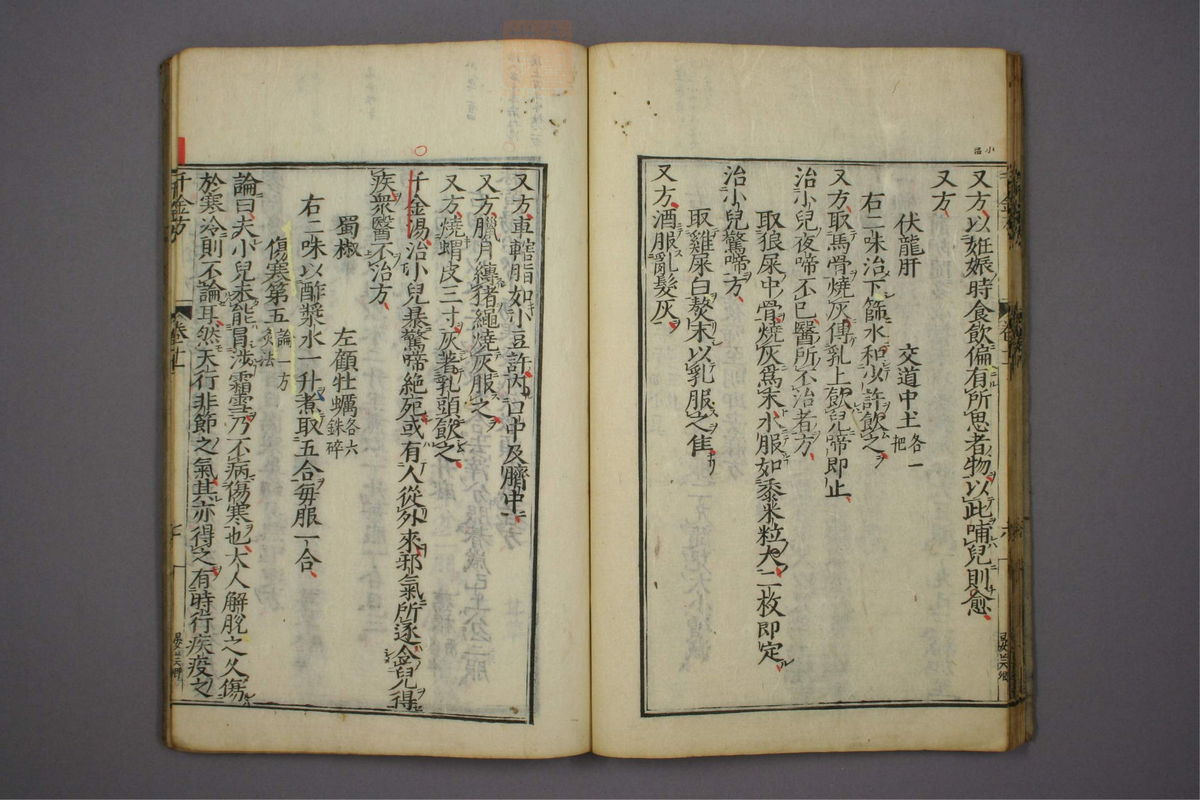 又方以姙娠時食飲偏有所思者物以此哺兒則愈
又方
伏龍肝 交道中土各一把
右二味治下篩水和少許飲之
又方取馬骨燒灰傅乳上飲兒啼即止
治小兒夜啼不已醫所不治者方
取狼屎中骨燒灰爲末水服如黍米粒大二枚即定
治小兒驚啼方
取雞屎白熬末以乳服之佳
又方酒服亂髮灰
又方車轄脂如小豆許內口中及臍中
又方臘月縛猪繩燒灰服之
又方燒蝟皮三寸灰著乳頭飲之
千金湯治小兒暴驚啼絕死或有人從外來邪氣所逐令兒得
疾衆醫不治方
蜀椒 左顧牡蠣各六銖碎
右二味以酢漿水一升煮取五合每服一合
傷寒第五 論 方 灸法
論曰夫小兒未能冒涉霜雪乃不病傷寒也大人解脫之久傷
於寒冷則不論耳然天行非節之氣其亦得之有時行疾疫之
千金方